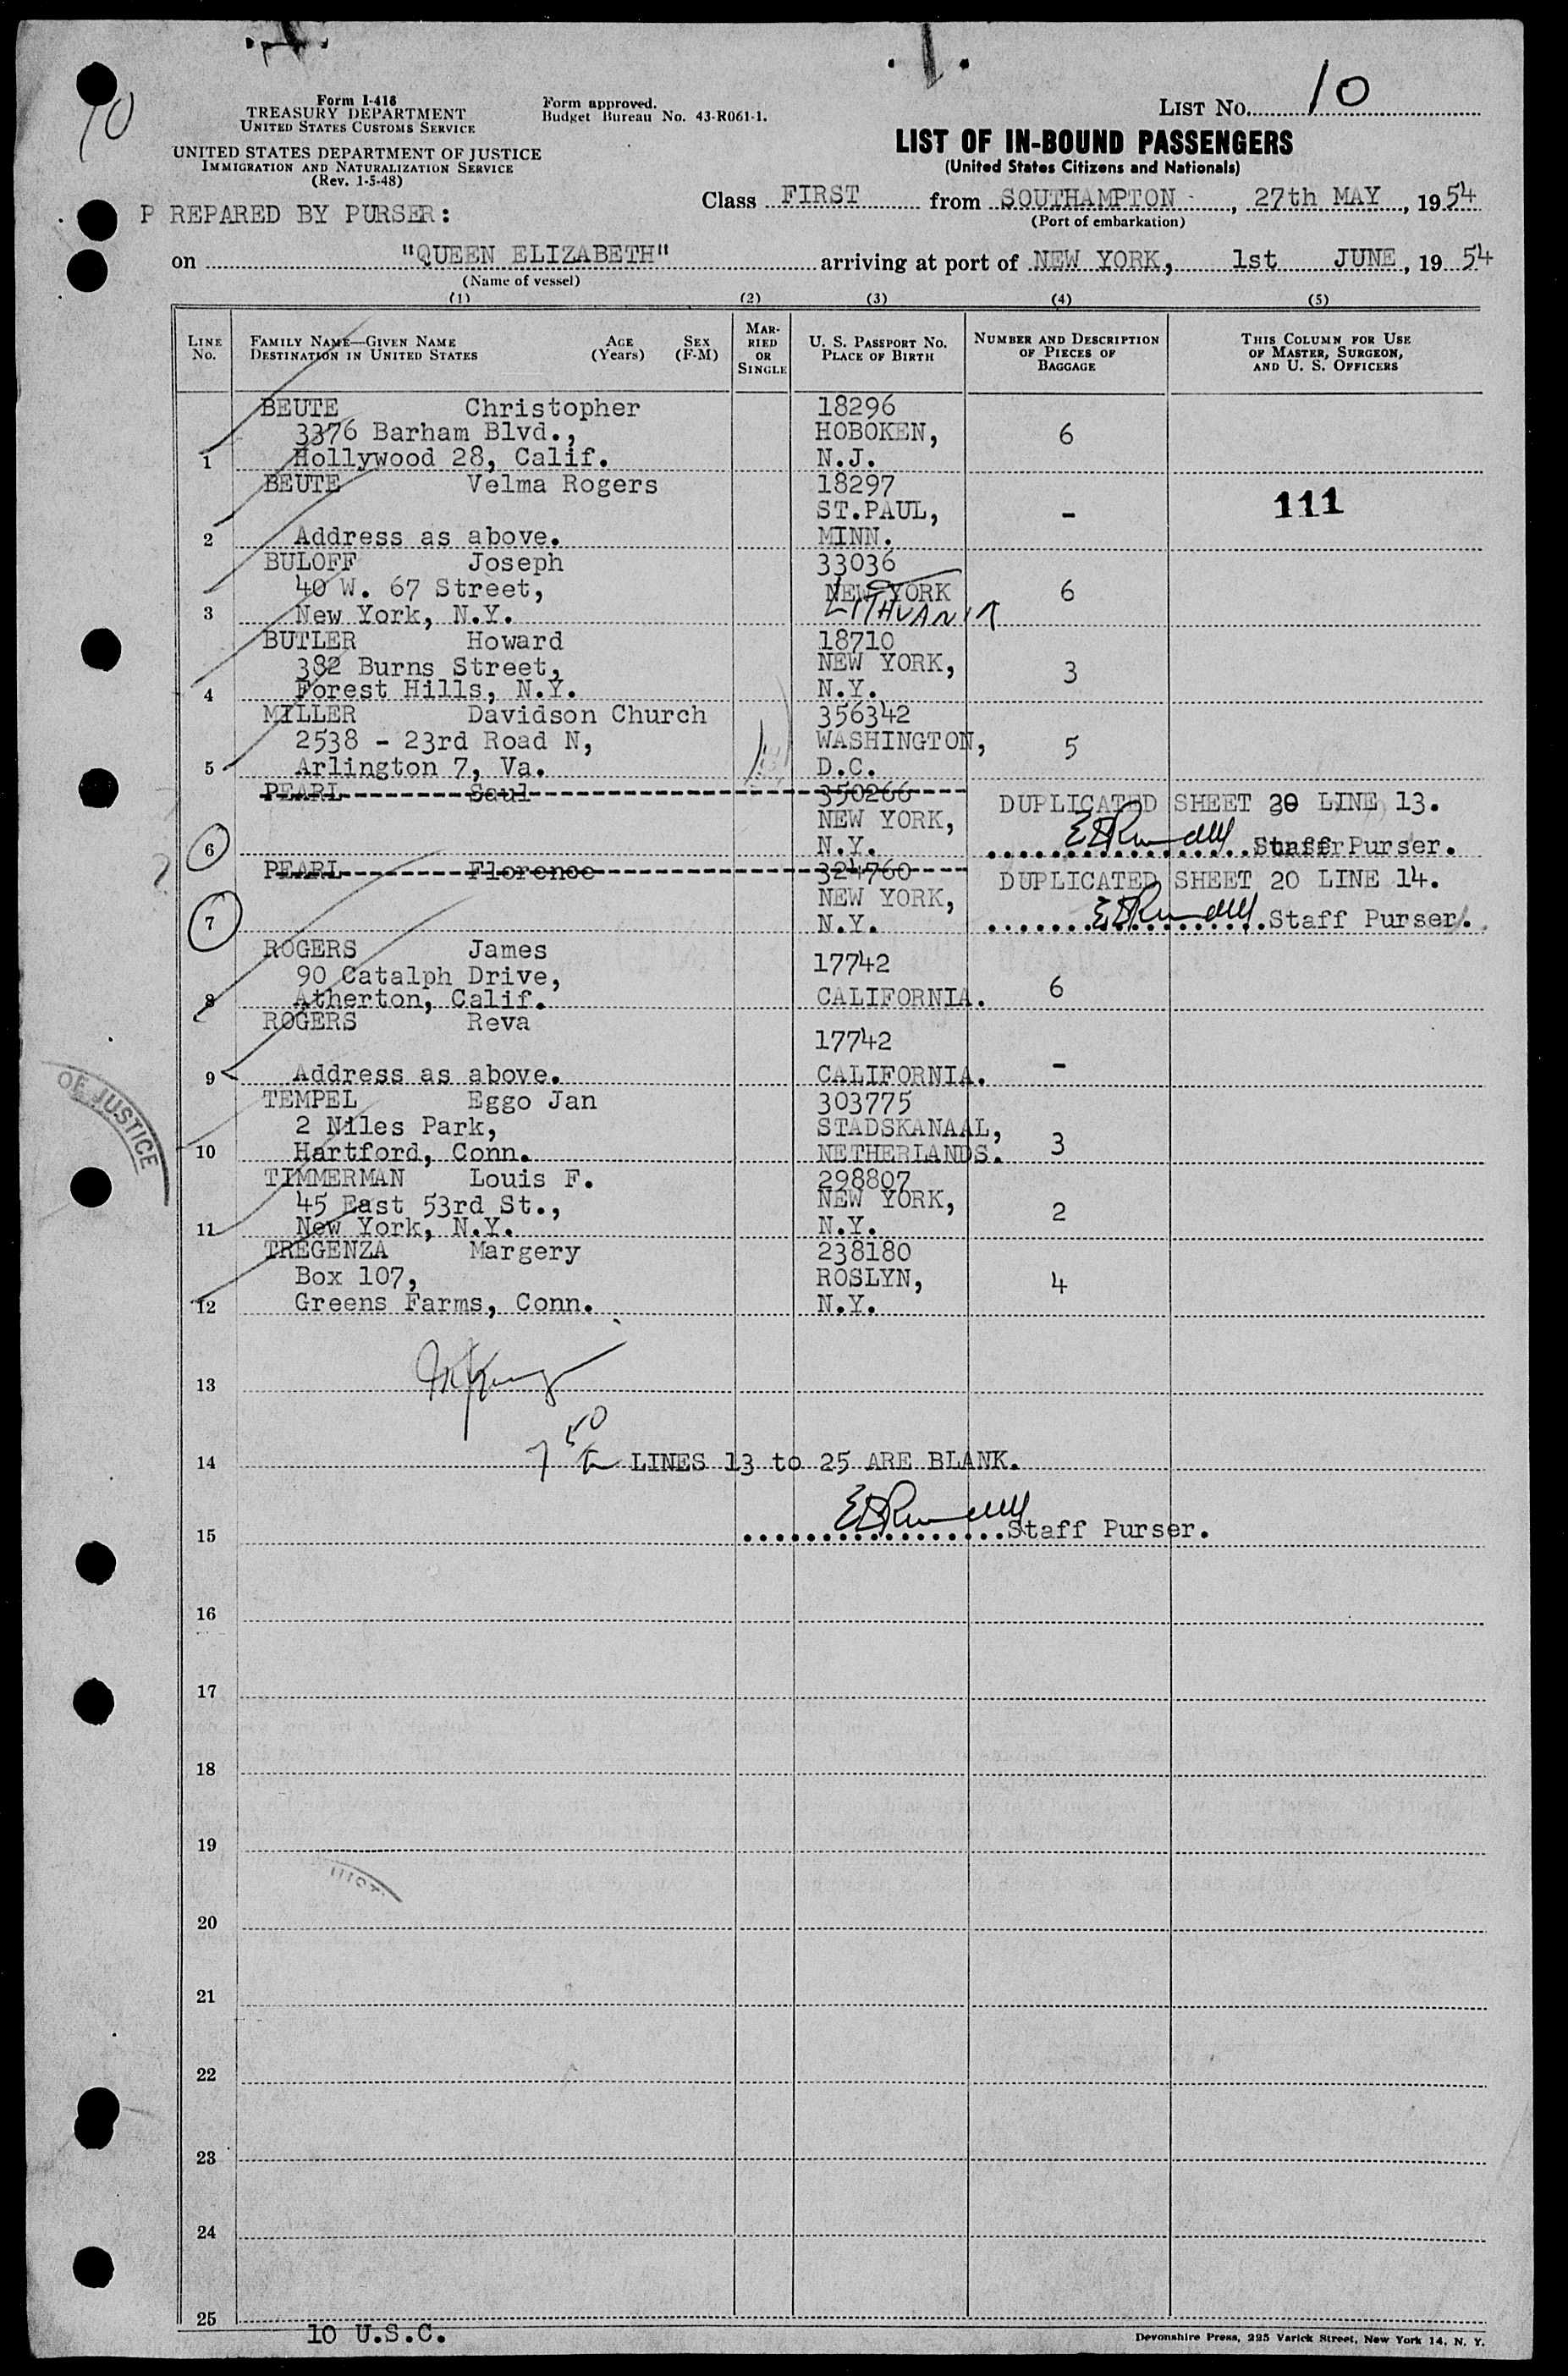 10
Form I-418
TREASURY DEPARTMENT
UNITED STATES CUSTOMS SERVICE
UNITED STATES DEPARTMENT OF JUSTICE
IMMIGRATION AND NATURALIZATION SERVICE
(Rev. 1-5-48)
Form approved.
Budget Bureau No. 43-R061-1.
LIST NO. 10
LIST OF IN-BOUND PASSENGERS
(United States Citizens and Nationals)
Class FIRST from SOUTHAMPTON, 27th MAY, 1954
(Port of embarkation)
P REPARED BY PURSER:
on "QUEEN ELIZABETH" arriving at port of NEW YORK, 1st JUNE, 1954
(Name of vessel)
(1) (2) (3) (4) (5)
LINE No.
FAMILY NAME—GIVEN NAME AGE (Years) SEX (F-M)
DESTINATION IN UNITED STATES
MARRIED OR SINGLE
U. S. PASSPORT NO.
PLACE OF BIRTH
NUMBER AND DESCRIPTION OF PIECES OF BAGGAGE
THIS COLUMN FOR USE OF MASTER, SURGEON, AND U. S. OFFICERS
BEUTE Christopher 18296
3376 Barham Blvd., HOBOKEN, 6
1 Hollywood 28, Calif. N.J.
BEUTE Velma Rogers 18297
ST.PAUL, - 111
2 Address as above. MINN.
BULOFF Joseph 33036
40 W. 67 Street, NEW YORK 6
3 New York, N.Y. LITHUANIA
BUTLER Howard 18710
382 Burns Street, NEW YORK, 3
4 Forest Hills, N.Y. N.Y.
MILLER Davidson Church 356342
2538 - 23rd Road N, WASHINGTON, 5
5 Arlington 7, Va. D.C.
PEARL Saul 350266
NEW YORK, DUPLICATED SHEET 20 LINE 13.
6 N.Y. Staff Purser.
PEARL Florence 324760 DUPLICATED SHEET 20 LINE 14.
NEW YORK,
7 N.Y. Staff Purser.
ROGERS James 17742
90 Catalph Drive, 6
8 Atherton, Calif. CALIFORNIA.
ROGERS Reva
17742
9 Address as above. CALIFORNIA. -
TEMPEL Eggo Jan 303775
2 Niles Park, STADSKANAAL, 3
10 Hartford, Conn. NETHERLANDS.
TIMMERMAN Louis F. 298807
45 East 53rd St., NEW YORK, 2
11 New York, N.Y. N.Y.
TREGENZA Margery 238180
Box 107, ROSLYN, 4
12 Greens Farms, Conn. N.Y.
13
14 LINES 13 to 25 ARE BLANK.
15 Staff Purser.
16
17
18
19
20
21
22
23
24
25
10 U.S.C.
Devonshire Press, 225 Varick Street, New York 14, N. Y.
OF JUSTICE